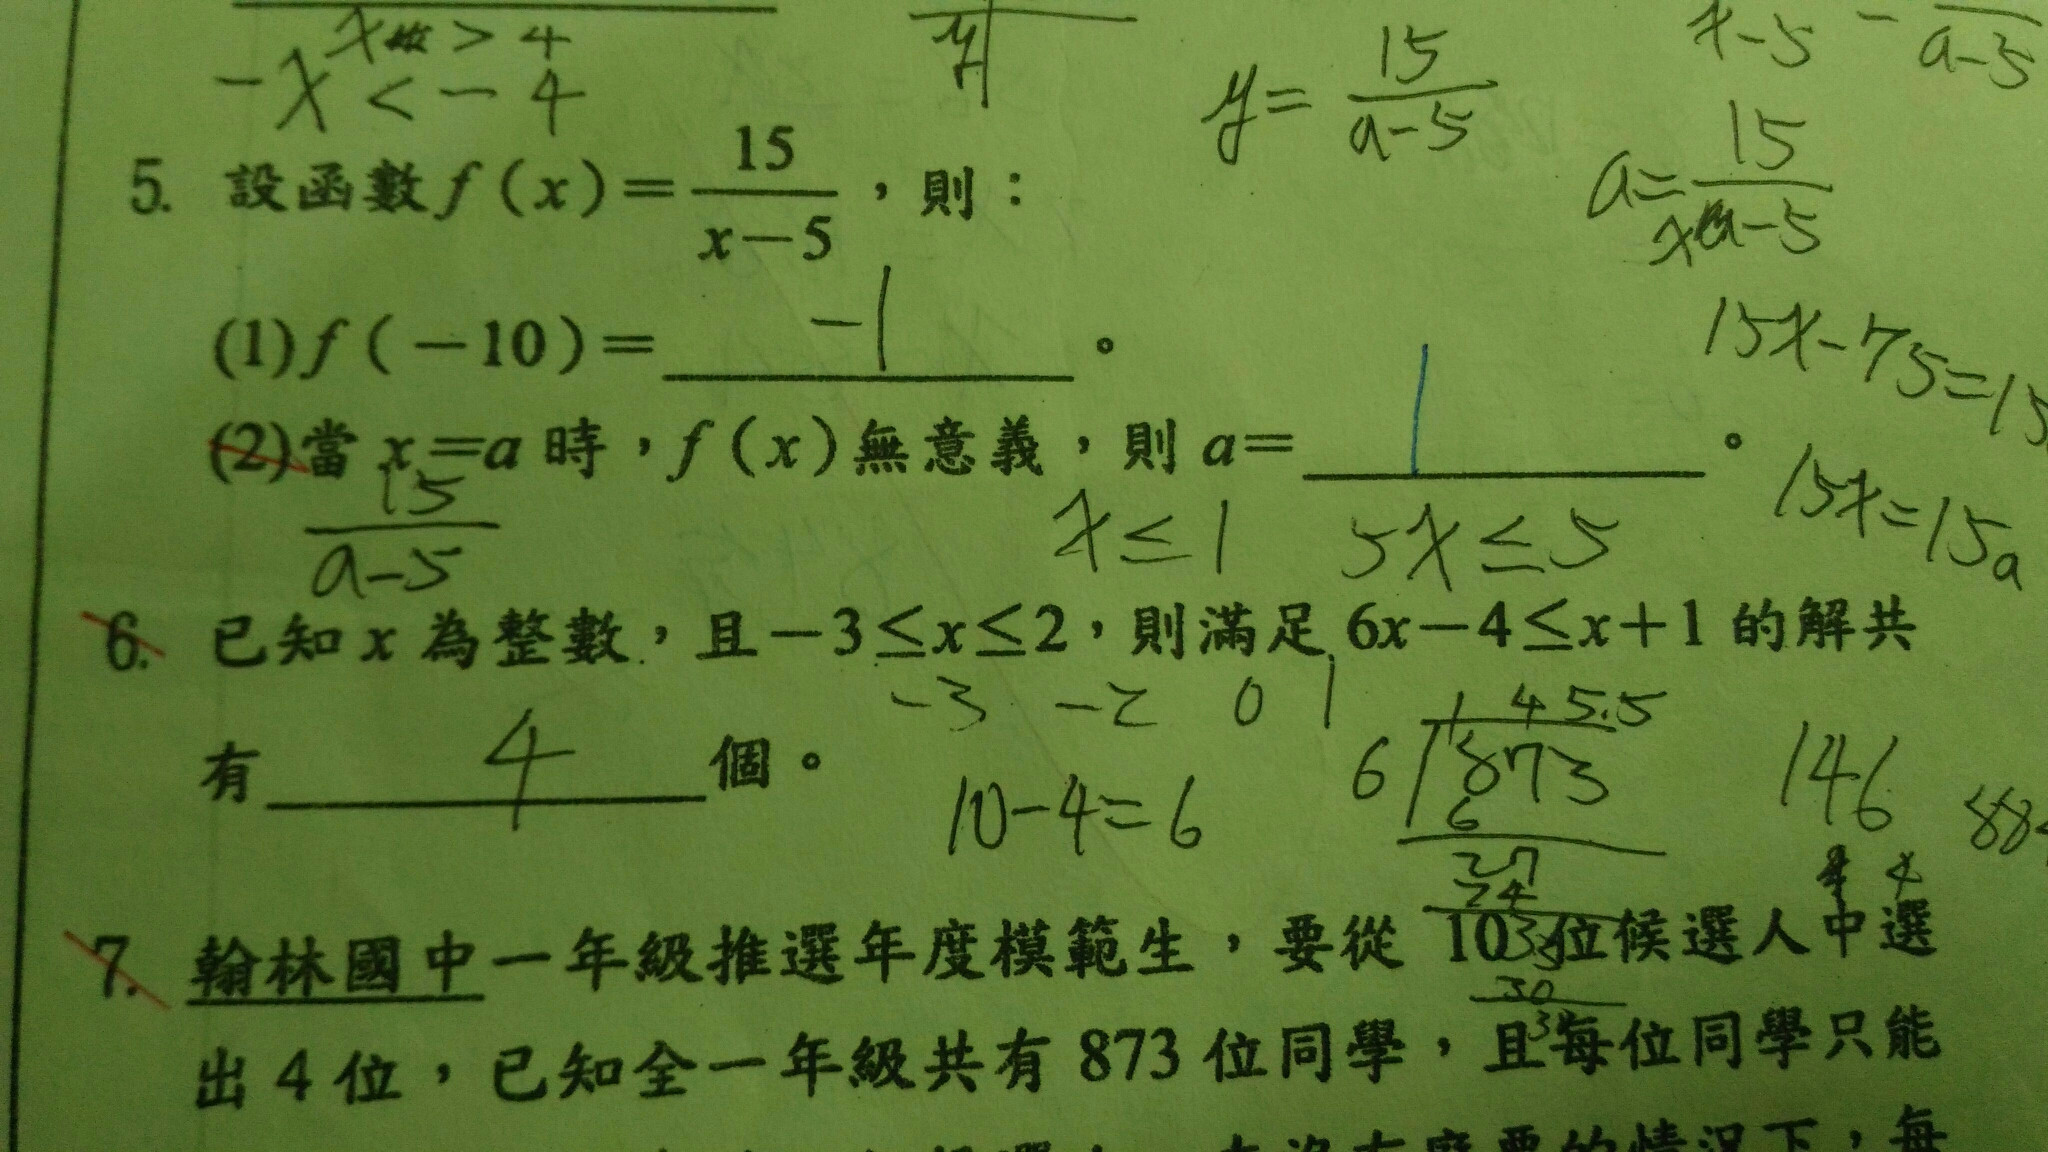 x > 4
-x < -4
y
y = 15/(a-5)
x-5 - a-5
a = 15/(x-5)
5. 設函數 f(x) = 15/(x-5)，則：
(1) f(-10) = -1。
15x-75=15
(2) 當 x=a 時，f(x) 無意義，則 a= 1。
15/(a-5)
x≤1 5x≤5
15x=15a
6. 已知 x 為整數，且 -3≤x≤2，則滿足 6x-4≤x+1 的解共
-3 -2 0 1
有 4 個。
10-4=6
145.5
6 873 146
6
27
24
33
30
3
7. 翰林國中一年級推選年度模範生，要從 10 位候選人中選
出 4 位，已知全一年級共有 873 位同學，且每位同學只能